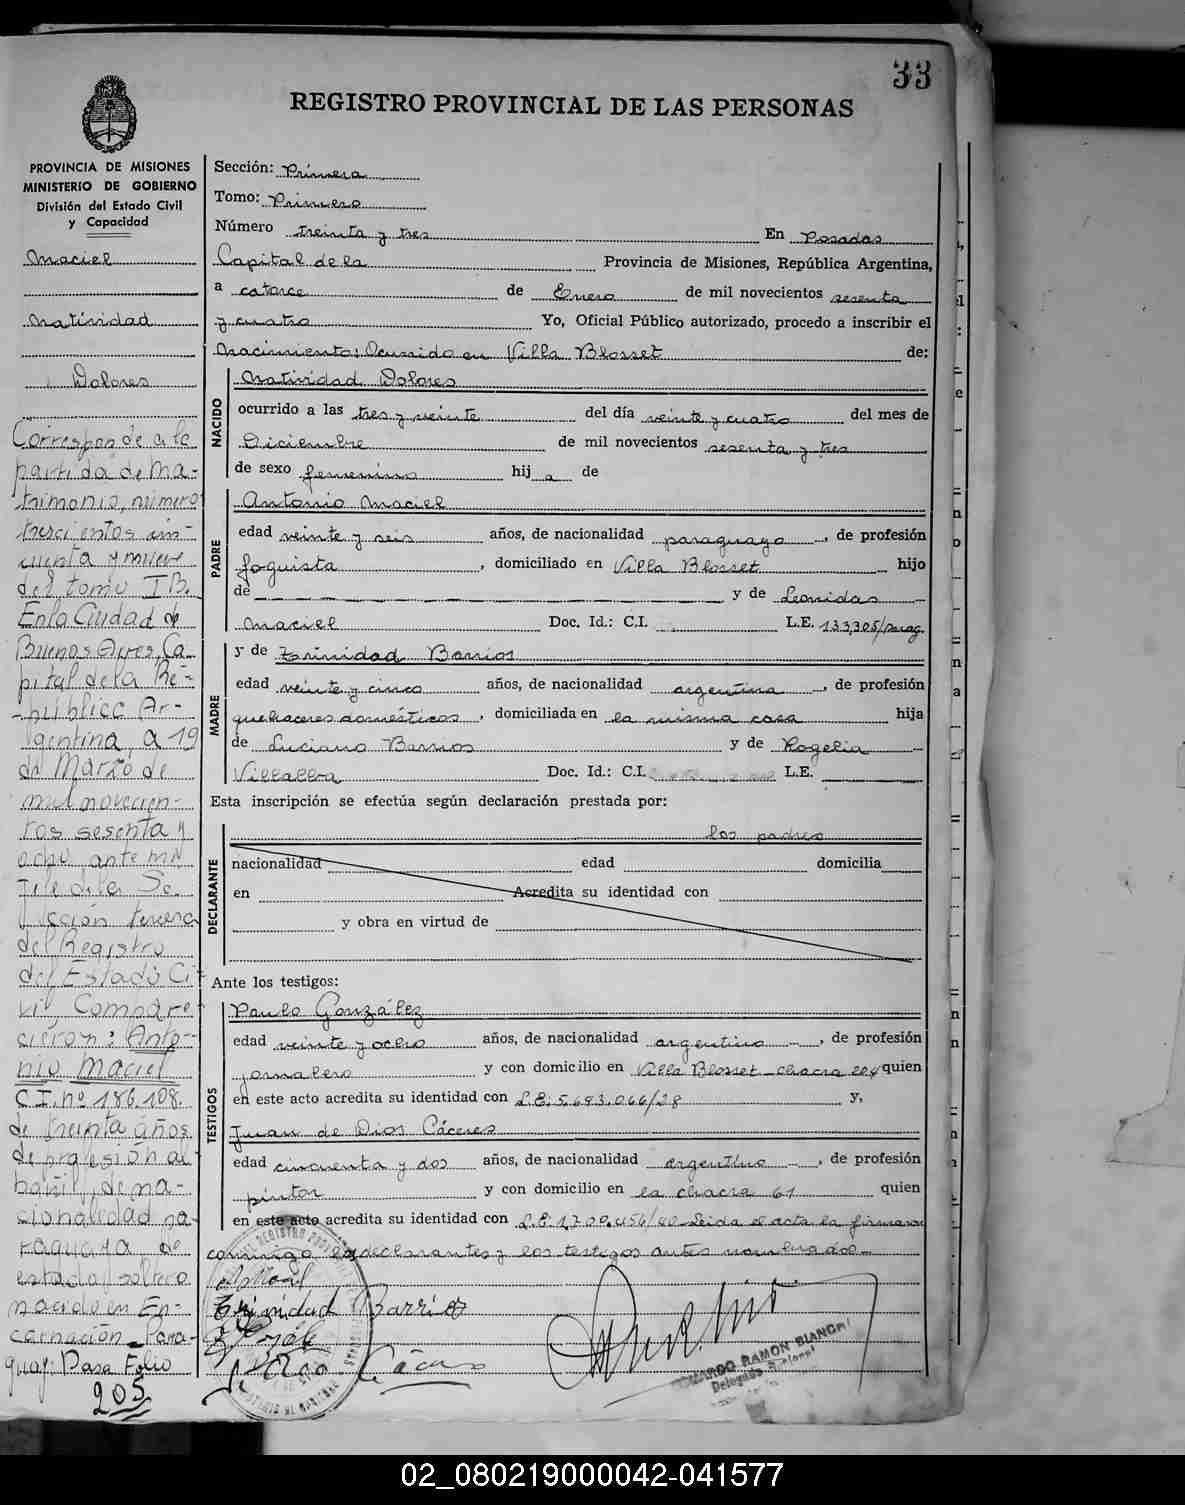 33
REGISTRO PROVINCIAL DE LAS PERSONAS
PROVINCIA DE MISIONES
MINISTERIO DE GOBIERNO
División del Estado Civil
y Capacidad
Maciel
Natividad
Dolores
Corresponde a la
partida de Ma-
trimonio, número
trescientos cin-
cuenta y nueve
del tomo I B.
En la Ciudad de
Buenos Aires, Ca-
pital de la Re-
pública Ar-
gentina, a 19
de Marzo de
mil novecien-
tos sesenta y
ocho ante mí
Jefe de la Se-
cción tercera
del Registro
del Estado Ci-
vil Compare-
cieron: Anto-
nio Maciel
C.I. nº 186.108.
de treinta años
de profesión al-
bañil, de na-
cionalidad pa-
raguaya, de
estado soltero
nacido en En-
carnación - Para-
guay. Pasa Folio
205
Sección: Primera
Tomo: Primero
Número treinta y tres En Posadas
Capital de la Provincia de Misiones, República Argentina,
a catorce de Enero de mil novecientos sesenta
y cuatro Yo, Oficial Público autorizado, procedo a inscribir el
Nacimiento: Ocurrido en Villa Blosset de:
NACIDO
Natividad Dolores
ocurrido a las tres y veinte del día veinte y cuatro del mes de
Diciembre de mil novecientos sesenta y tres
de sexo femenino hij a de
PADRE
Antonio Maciel
edad veinte y seis años, de nacionalidad paraguayo, de profesión
foguista, domiciliado en Villa Blosset hijo
de y de Leonidas
Maciel Doc. Id.: C.I. L.E. 133,305/parag.
MADRE
y de Trinidad Barrios
edad veinte y cinco años, de nacionalidad argentina, de profesión
quehaceres domésticos, domiciliada en la misma casa hija
de Luciano Barrios y de Rogelia
Villalba Doc. Id.: C.I. L.E.
Esta inscripción se efectúa según declaración prestada por:
DECLARANTE
los padres
nacionalidad edad domicilia
en Acredita su identidad con
y obra en virtud de
Ante los testigos:
TESTIGOS
Paulo González
edad veinte y ocho años, de nacionalidad argentino, de profesión
jornalero y con domicilio en Villa Blosset - chacra 204 quien
en este acto acredita su identidad con L.E. 5.693.066/28 y,
Juan de Dios Cáceres
edad cincuenta y dos años, de nacionalidad argentino, de profesión
pintor y con domicilio en la chacra 61 quien
en este acto acredita su identidad con L.E. 1.700.456/00 Leida el acta la firmaron
conmigo los declarantes y los testigos antes nombrados
Trinidad Barrios
Cáceres
EDUARDO RAMON BIANCHI
Delegado
02_080219000042-041577